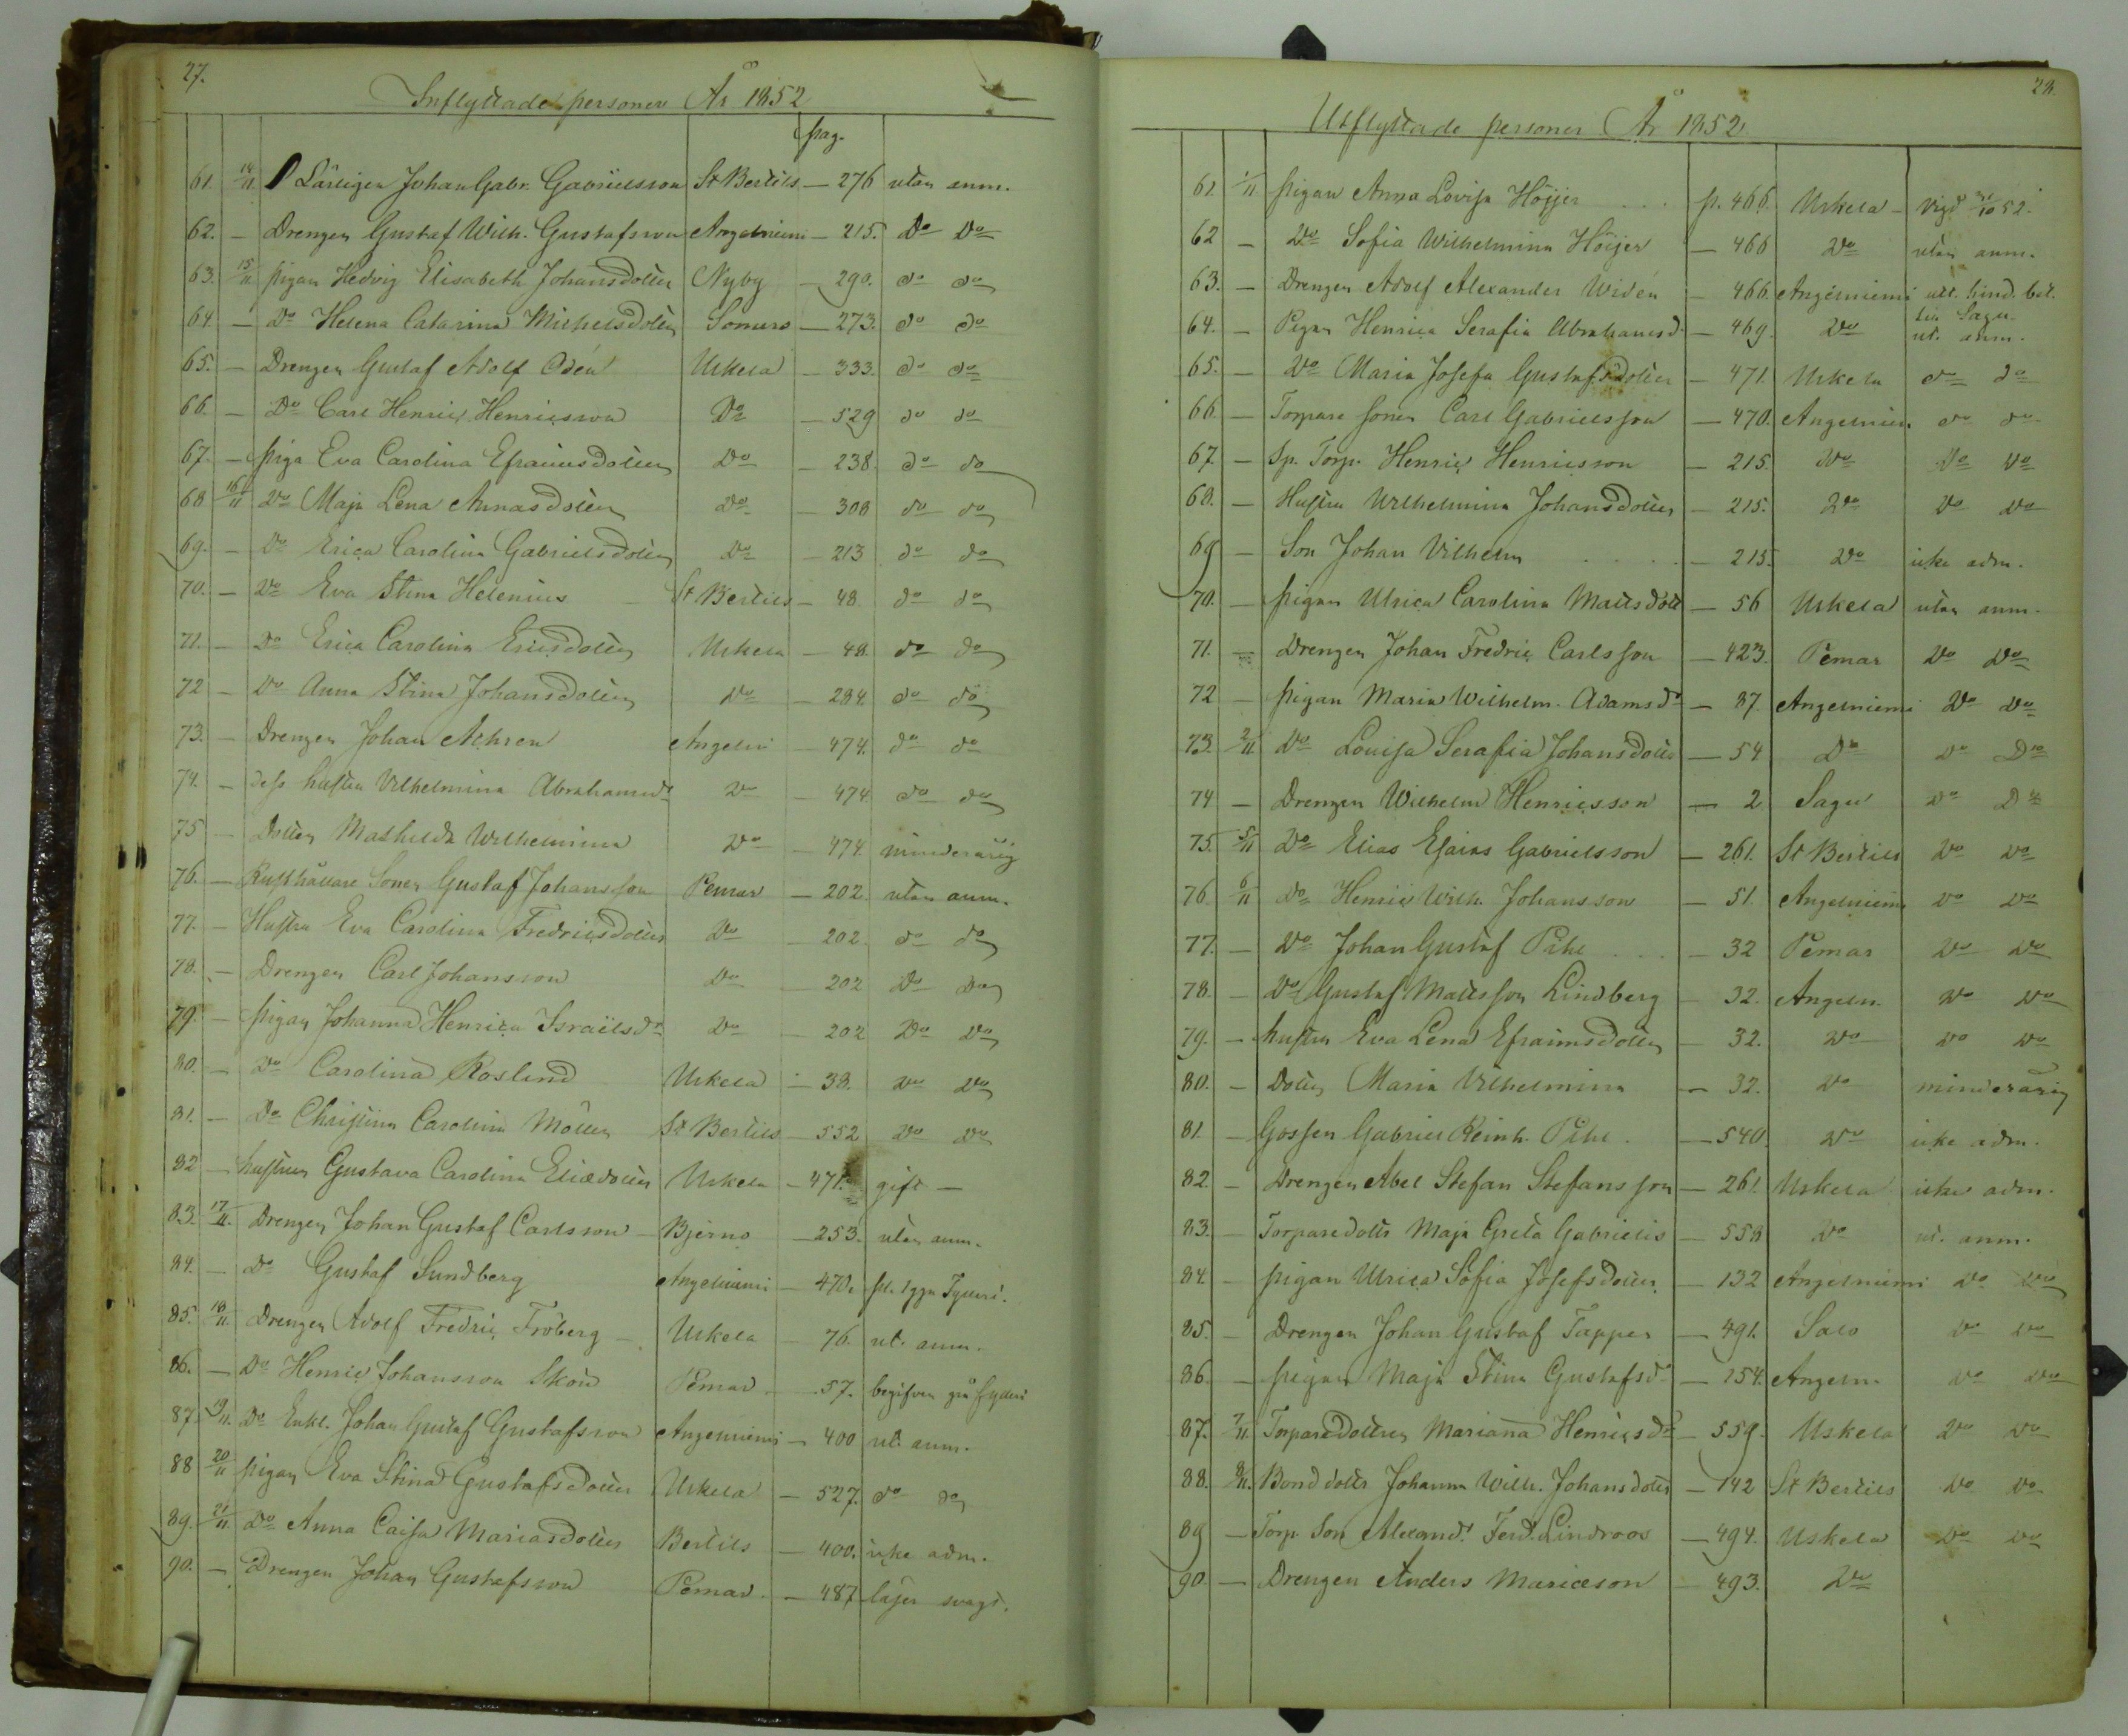 27.
Inflyttade personer År 1852
pag.
61. 14/11 Lärlingen Johan Gabr. Gabrielsson St Bertils — 276 utan anm.
62. — Drengen Gustaf Wilh. Gustafsson Angelniemi — 215. Do Do
63. 15/11 pigan Hedvig Elisabeth Johansdotter Nyby — 290. do do
64. — Do Helena Catarina Michelsdotter Somero — 273. do do
65. — Drengen Gustaf Adolf Odén Uskela — 333. do do
66. — Do Carl Henric Henricsson Do — 529 do do
67. — piga Eva Carolina Efraimsdotter Do — 238. do do
68 16/11 Do Maja Lena Annasdotter Do — 308 do do
69. — Do Erica Carolina Gabrielsdotter Do — 213 do do
70. — Do Eva Stina Helenius St Bertils — 48 do do
71. — Do Erica Carolina Ericsdotter Uskela — 48. do do
72 — Do Anna Stina Johansdotter Do — 284. do do
73. — Drengen Johan Achren Angelni — 474. do do
74. — dess hustru Vilhelmina Abrahamsdr Do — 474. do do
75 — Dotter Mathilda Wilhelmina Do — 474. minderårig
76. — Rusthållare Sonen Gustaf Johansson Pemar — 202. utan anm.
77. — Hustru Eva Carolina Fredricsdotter Do — 202. do do
78. — Drengen Carl Johansson Do — 202 Do Do
79. — pigan Johanna Henrica Israelsdr Do — 202 Do Do
80. — Do Carolina Roslind Uskela — 38. Do Do
81. — Do Christina Carolina Möller St Bertils — 552 Do Do
82 — hustrun Gustava Carolina Eliædotter Uskela — 471. gift —
83. 17/11. Drengen Johan Gustaf Carlsson — Bjerno — 253. utan anm.
84. — Do Gustaf Sundberg Angelniemi — 470.
85. 18/11 Drengen Adolf Fredric Fröberg — Uskela — 76. ut. anm.
86. — Do Henric Johansson Skön Pemar — 57.
87. 19/11. Do Enkl. Johan Gustaf Gustafsson Angelniemi — 400 ut. anm.
88 20/11 pigan Eva Stina Gustafsdotter Uskela — 527. do do
89. 21/11. Do Anna Caisa Mariasdotter Bertils — 400. icke adm.
90. — Drengen Johan Gustafsson Pemar. — 487 läser svagt.
28.
Utflyttade personer År 1852
61. 1/11 pigan Anna Lovisa Höijer . . . p. 466. Uskela — vigd 31/10 52.
62 — Do Sofia Wilhelmina Höijer — 466 Do utan anm.
63. — Drengen Adolf Alexander Widén — 466. Angelniemi
64. — Pigan Henrica Serafia Abrahamsd. — 469. Do ut. anm.
65. — Do Maria Josefa Gustafsdotter — 471. Uskela do do
66. — Torpare sonen Carl Gabrielsson — 470. Angelniem do do
67. — Sp. Torp. Henric Henricsson — 215. Do Do Do
68. — Hustru Wilhelmina Johansdotter — 215. Do Do Do
69 — Son Johan Vilhelm . . . . — 215. Do icke adm.
70. — pigan Ulrica Carolina Mattsdott — 56 Uskela utan anm.
71. — Drengen Johan Fredric Carlsson — 423. Pemar Do Do
72 — pigan Maria Wilhelm. Adamsdr — 87. Angelniemi Do Do
73. 2/11 Do Lovisa Serafia Johansdotter — 54 Do Do Do
74 — Drengen Wilhelm Henricsson — 2 Sagu Do Do
75. 5/11 Do Elias Esaias Gabrielsson — 261. St Bertils Do Do
76. 6/11 Do Henric Wilh. Johansson — 51. Angelniemi Do Do
77. — Do Johan Gustaf Pihl . . . — 32 Pemar Do Do
78. — Do Gustaf Mattsson Lindberg — 32. Angeln. Do Do
79. — hustru Eva Lena Efraimsdotter — 32. Do Do Do
80. — Dotter Maria Vilhelmina — 32. Do minderårig
81. — Gossen Gabriel Reinh. Pihl . — 540. Do icke adm.
82. — Drengen Abel Stefan Stefansson — 261. Uskela icke adm.
83. — Torparedottr Maja Greta Gabrielis — 558 Do ut. anm.
84. — pigan Ulrica Sofia Josefsdotter — 132 Angelniemi Do Do
85. — Drengen Johan Gustaf Tapper — 491. Salo Do Do
86. — pigan Maja Stina Gustafsdr — 254. Angeln. Do Do
87. 7/11 Torparedottren Mariana Henricsdr — 559. Uskela Do Do
88. 8/11. Bonddottr Johanna Wilh. Johansdottr — 142 St Bertils Do Do
89 — Torp. Son Alexand. Ferd. Lindroos — 494. Uskela Do Do
90. — Drengen Anders Mariæson — 493. Do